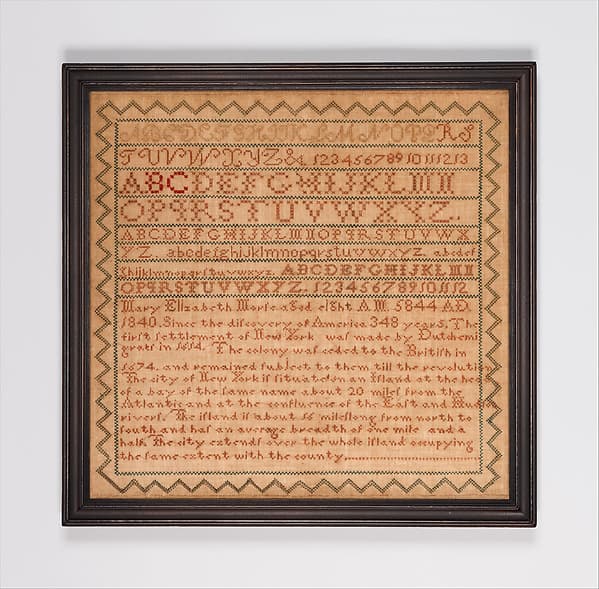 ABCDEFGHIJKLMNOPQRS
TUVWXYZ& 12345678910111213
ABCDEFGHIJKLMN
OPQRSTUVWXYZ.
ABCDEFGHIJKLMNOPQRSTUVWX
YZ. abcdefghijklmnopqrstuvwxyz. abcdef
ghijklmnopqrstuvwxyz. ABCDEFGHIJKLMN
OPQRSTUVWXYZ. 123456789101112
Mary Elizabeth Morse aged eight A.M. 5844 A.D.
1840. Since the discovery of America 348 years. The
first settlement of New York was made by Dutchemi
grats in 1614. The colony was ceded to the British in
1674. and remained subject to them till the revolution
The city of New York is situated on an Island at the head
of a bay of the same name about 20 miles from the
Atlantic and at the confluence of the East and Hudson
rivers. The island is about 16 miles long from north to
south and has an average breadth of one mile and a
half. The city extends over the whole island occupying
the same extent with the county